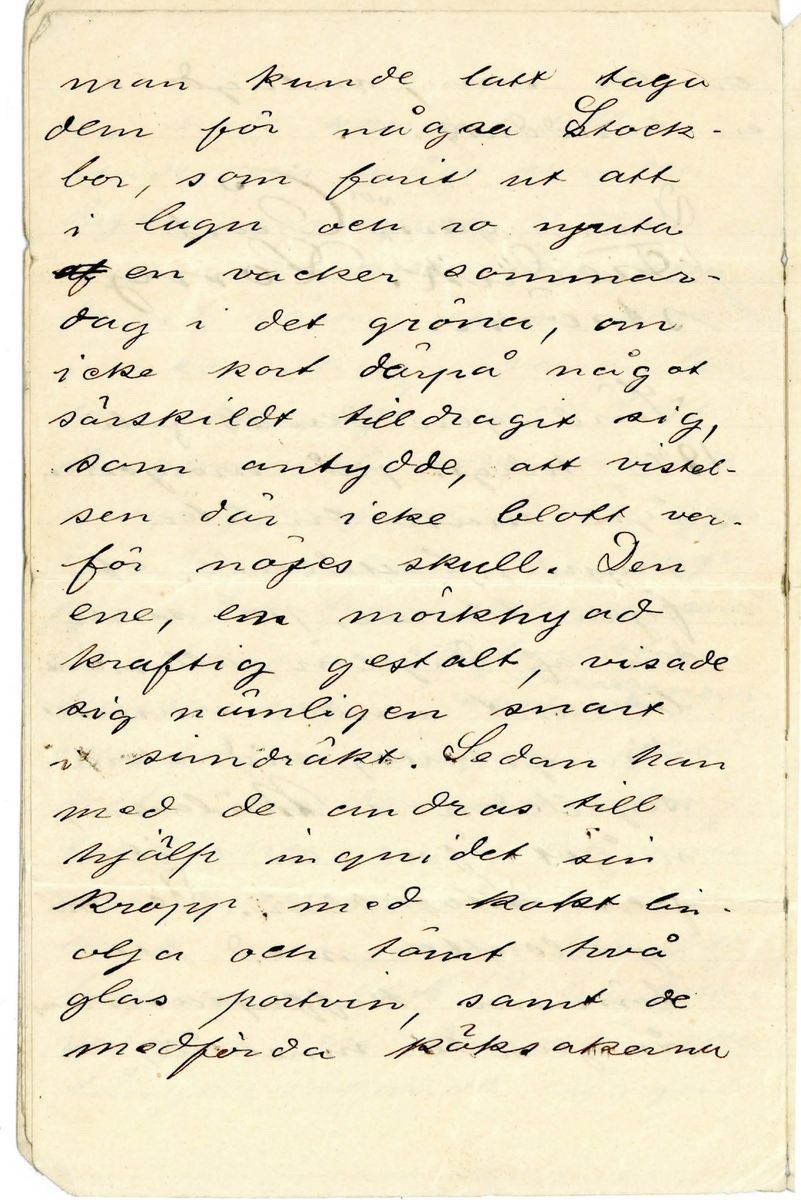 man kunde lätt taga
dem för några Stock-
bor, som farit ut att
i lugn och ro njuta
af en vacker sommar-
dag i det gröna, om
icke kort därpå något
särskildt tilldragit sig,
som antydde, att vistel-
sen där icke blott var
för nöjes skull. Den
ene, en mörkhyad
kraftig gestalt, visade
sig nämligen snart
i simdräkt. Sedan han
med de andras till
hjälp ingnidet sin
kropp med kokt lin-
olja och tömt två
glas portvin, samt de
medförda köksakerna